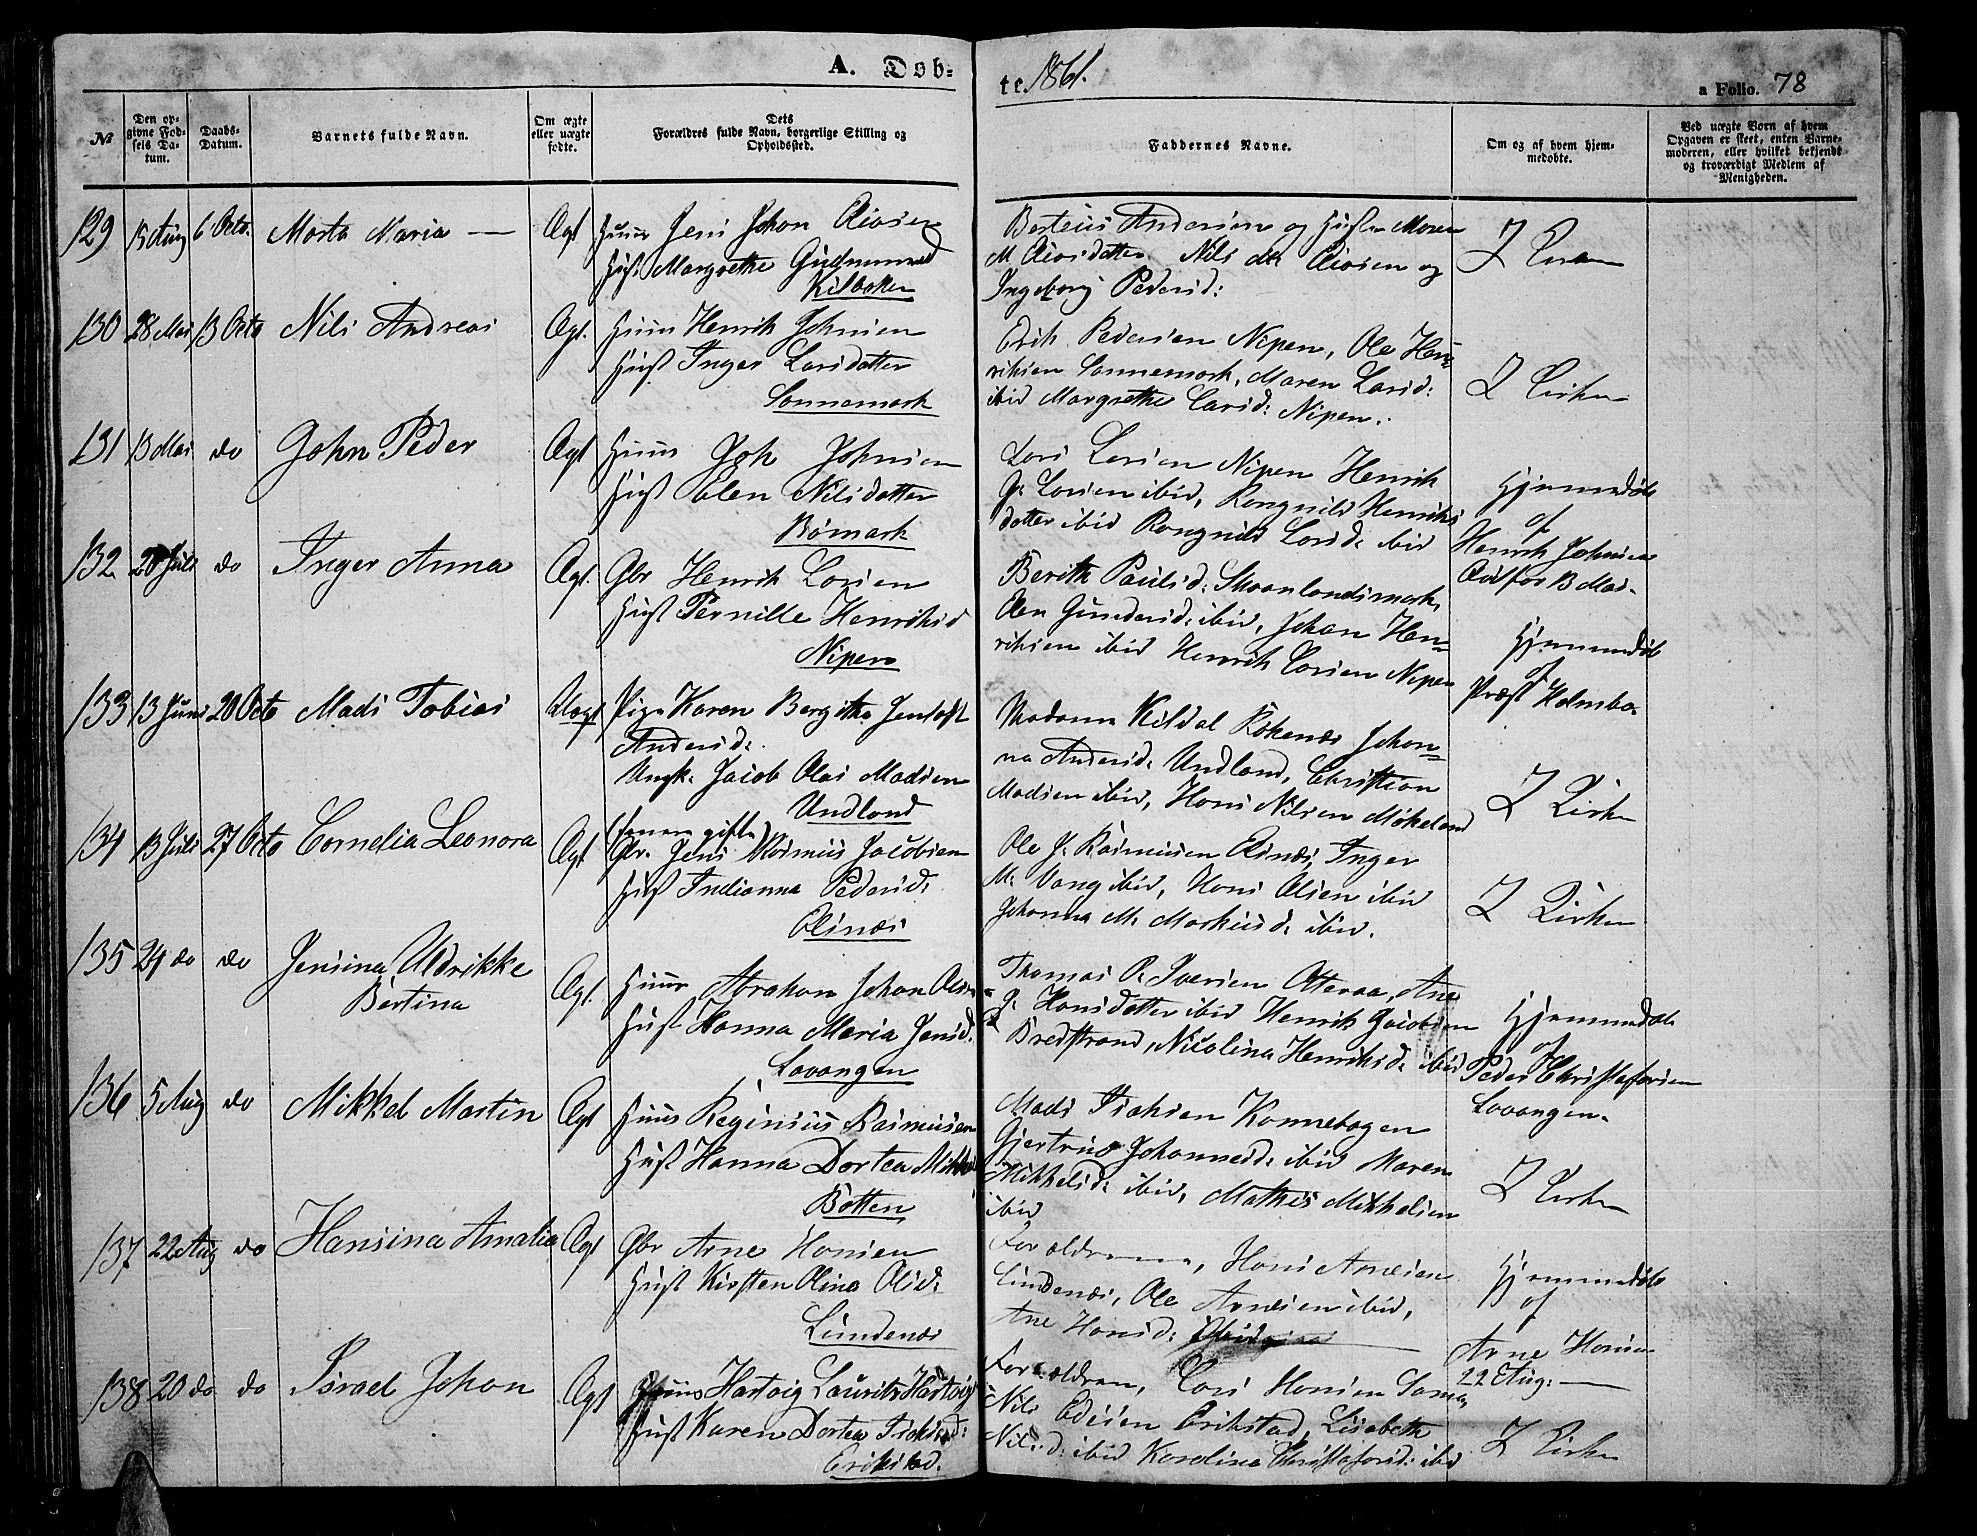 A. Døb=
te 1861.
a Folio. 78
№
Den opgivne Fødsels Datum.
Daabs-Datum.
Barnets fulde Navn.
Om ægte eller uægte fødte.
Dets Forældres fulde Navn, borgerlige Stilling og Opholdssted.
Faddernes Navne.
Om og af hvem hjemmedøbte.
Ved uægte Børn af hvem Opgaven er skeet, enten Barnemoderen, eller hvilket bekjendt og troværdigt Medlem af Menigheden.
129 15 Aug 6 Octo. Marta Maria — Ægt Huus Jens Johan
Hust Margrethe
Kilbotn
Berteus Andersen og Hustr Maren
M. Nils og
Ingeborg Pedersd:
I Kirken
130 28 Mai 13 Octo Nils Andreas Ægt. Huus Henrik Johnsen
Hust Inger Larsdatter
Sonnemark
Erik Pedersen Nipen, Ole Hen=
riksen Sonnemark, Maren Larsd:
ibid Margrethe Larsd: Nipen.
I Kirken
131 13 Mai do John Peder Ægt Huus Joh Johnsen
Hust Elen Nilsdatter
Bømark
Lars Larsen Nipen Henrik
J. Larsen ibid, Rangnild Henriks
datter ibid Rangnild Larsd. ibid
Hjemmedøbt
af
Henrik Johnsen
13 Mai.
132 20 Juli do Inger Anna Ægt. Gbr Henrik Larsen
Hust Pernille Henriksd
Nipen
Berith Paulsd. Skaanlandsmark,
Elen Gundersd. ibid, Johan Hen=
riksen ibid Henrik Larsen Nipen
Hjemmedøbt
af
Præst Holmboe
133 13 Juni 20 Octo Mads Tobias Uægt Pige Karen Bergitha Jentoft
Andersd.
Ungk. Jacob Olai Madsen
Undland
Madame Kildal Røkenes Johan=
na Andersd. Undland, Christian
Madsen ibid, Hans Nilsen Møkeland
I Kirken
134 13 Juli 27 Octo Cornelia Leonora Ægt (forven gifte)
Gbr. Jens Rasmus Jacobsen
Hust Indianna Pedersd.
Elsnæs
Ole J. Rasmussen Elsnæs, Inger
M. Vang ibid, Hans Olsen ibid
Johanna M. Markusd. ibid.
I Kirken
135 24 do do Jensina Uldrikke
Bertina
Ægt. Huus Abraham Johan Olsen
Hust Hanna Maria Jensd.
Lavangen
Thomas P. Iversen Otteraa, Ane
J. Hansdatter ibid Henrik Jacobsen
Bredstrand, Nicolina Henriksd. ibid
Hjemmedøbt
af
Peder Christofersen
Lavangen.
136 5 Aug do Mikkel Martin Ægt Huus Reginius Rasmussen
Hust Hanna Dortea Mikkelsd
Botten
Mads Isaksen Konnebogen
Gjertrud Johannesd. ibid Maren
Mikkelsd. ibid, Mathis Mikkelsen
ibid
I Kirken
137 22 Aug do Hansina Amalia Ægt Gbr Arne Hansen
Hust Kirsten Olina Olsd.
Lundenæs
Forældrene, Hans Arnesen
Lundenæs, Ole Arnesen ibid,
Ane Hansd.
Hjemmedøbt
af
Arne Hansen
22 Aug. —
138 20 do do Israel Johan Ægt Huus Hartvig Laurits Hartvigs
Hust Karen Dortea Isaksd.
Erikstad.
Forældrene, Lars Hansen Sama,
Nils Edisen Erikstad, Lisabeth
Nilsd. ibid Karolina Christofersd. ibid
I Kirken